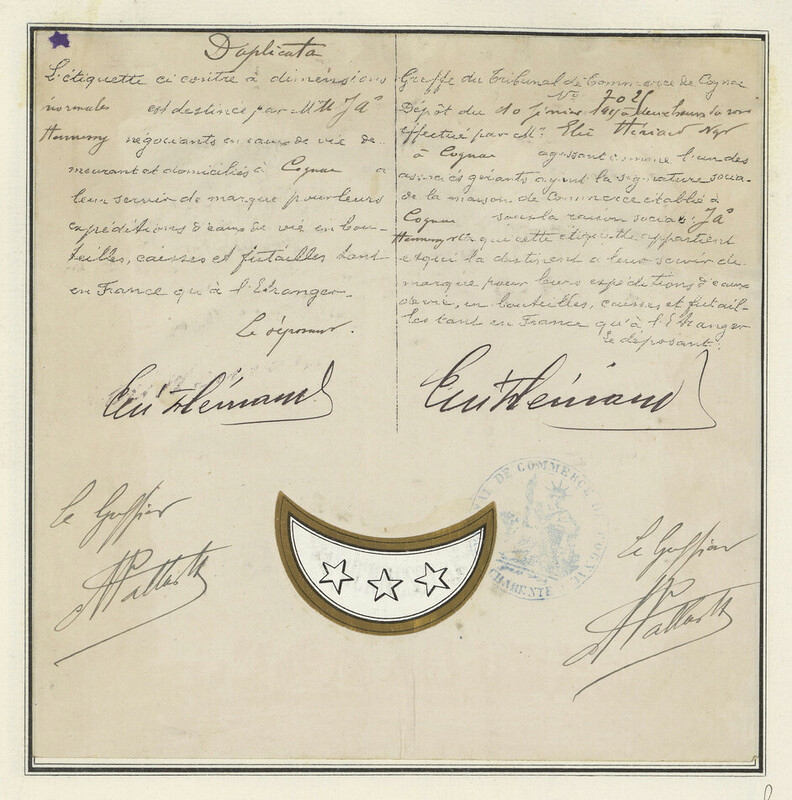 Duplicata
L'étiquette ci contre à dimensions
normales est destinée par M.M. Jas
Hennessy négociants en eaux de vie de-
meurant et domiciliés à Cognac à
leur servir de marque pour leurs
expéditions d'eaux de vie en bou-
teilles, caisses et futailles tant
en France qu'à l'Etranger.
Le déposant.
Greffe du Tribunal de Commerce de Cognac
No
Dépôt du 10 à deux heures du soir
effectué par Mr
à Cognac agissant comme l'un des
associés gérants ayant la signature socia-
le de la maison de Commerce établie à
Cognac sous la raison sociale: Jas
Hennessy que cette étiquette appartient
et qui la destinent à leur servir de
marque pour leurs expéditions d'eaux
de vie, en bouteilles, caisses et futail-
les tant en France qu'à l'Etranger
le déposant:
TRIBUNAL DE COMMERCE DE COGNAC
CHARENTE
Le Greffier
Le Greffier